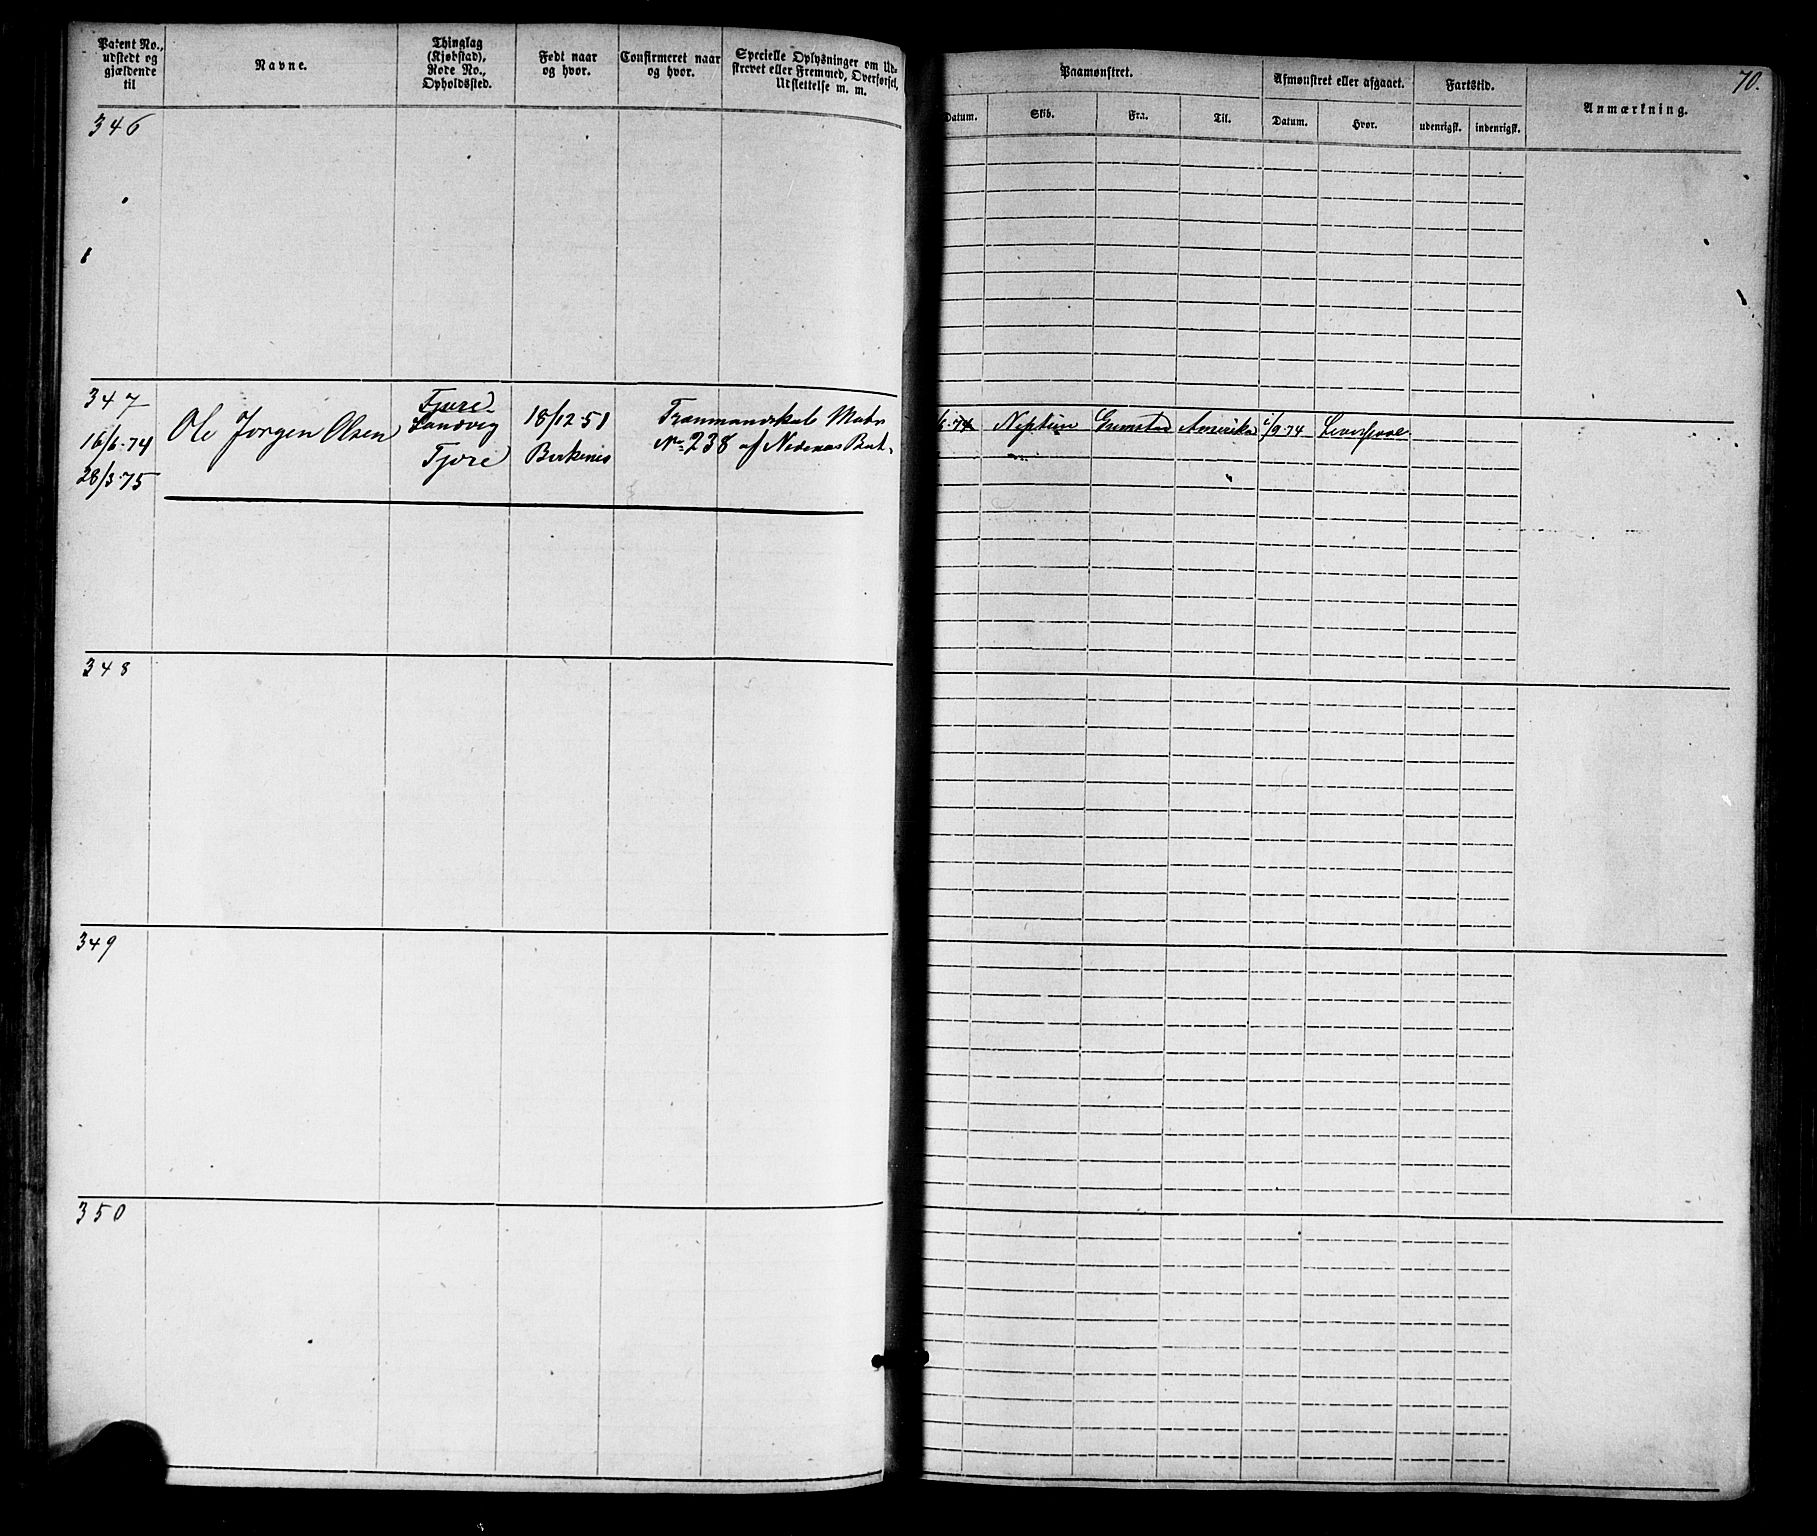 Patent No., udstedt og gjældende til
Navne.
Thinglag (Kjøbstad), Rode No., Opholdssted.
Født naar og hvor.
Confirmeret naar og hvor.
Specielle Oplysninger om Udskrevet eller Fremmed, Overførsel, Udslettelse m. m.
Paamønstret.
Afmønstret eller afgaaet.
Fartstid.
Anmærkning.
70.
Datum.
Skib.
Fra.
Til.
Datum.
Hvor.
udenrigsk.
indenrigsk.
346
347
16/6-74
28/3-75
Ole Jørgen Olsen
Fjære
Landvig
Fjære
18/12-51
Birkenes
No 238 af Nedenæs Bat.
6-74
Neptun
Grimstad
Amerika
/9-74
Liverpool
348
349
350